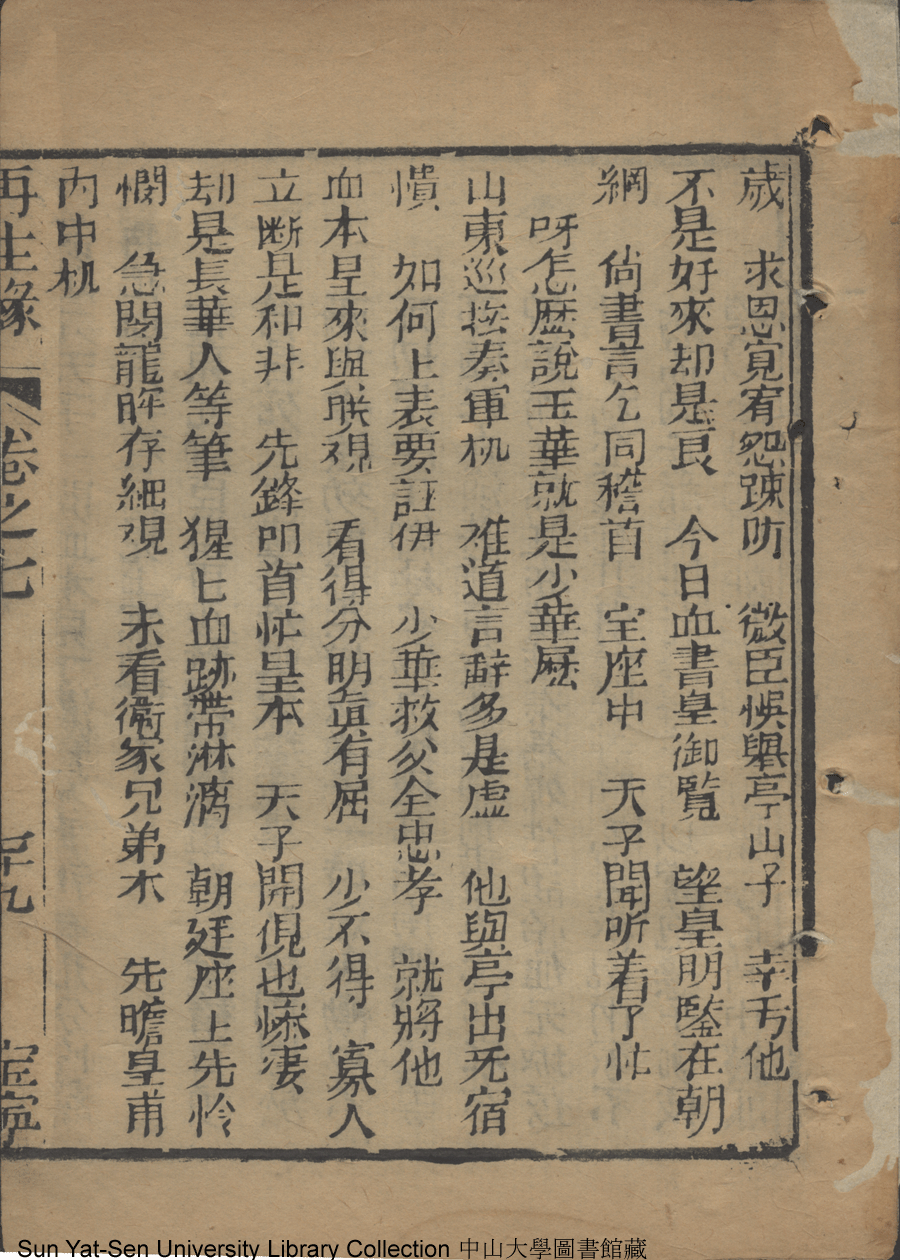 歲　求恩寬宥恕踈防　微臣悞舉亭山子　幸亐他
不是好來却是良　今日血書皇御覽　望皇明鑒在朝
綱　尙書言乞同稽首　宝座中　天子聞听着了忙
呀怎麽說王華就是少華麽
山東巡撫奏軍机　难道言辭多是虛　他與亭出死宿
憒　如何上表要証伊　少華救父全忠孝　就將他
血本呈來與朕观　看得分明眞有屈　少不得　寡人
立断是和非　先鋒叩首忙呈本　天子開俔也慘凄
却是長華人等筆　猩匕血跡帶淋漓　朝廷座上先怜
憫　急閱龍眸存細观　未看衛家兄弟本　先瞻皇甫
內中机
再生緣　卷之七　　宝寧
Sun Yat-Sen University Library Collection 中山大學圖書館藏